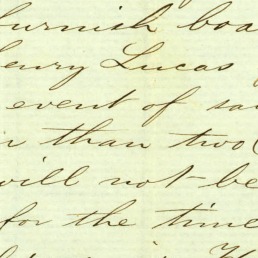 furnish boa
Henry Lucas
event of sa
r than two (
will not be
for the time